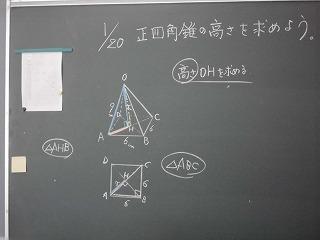 1/20 正四角錐の高さを求めよう。
高さOHを求める
O
A
H
B
C
6
6cm
△AHB
D
C
H
6
A
6
B
△ABC